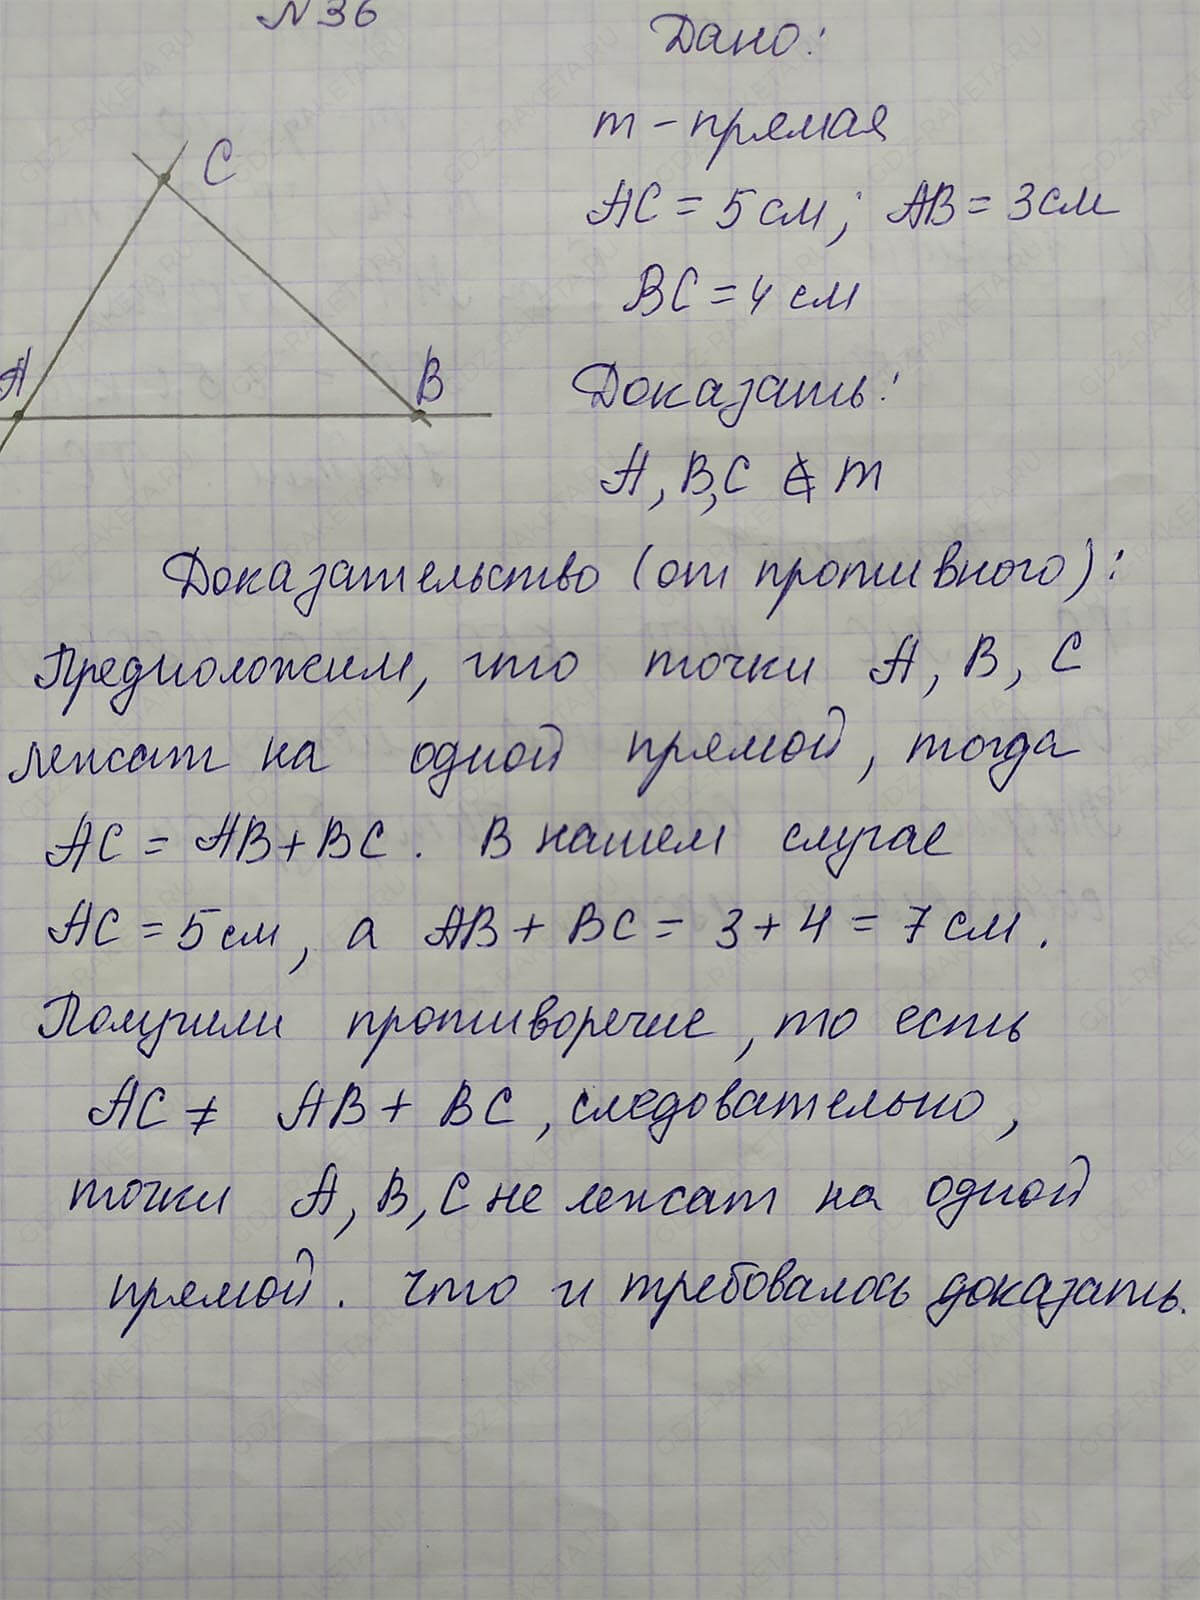 N 36
Дано:
C
m - прямая
AC = 5 см; AB = 3 см
BC = 4 см
A
B
Доказать:
A, B, C ∉ m
Доказательство (от противного):
Предположим, что точки A, B, C
лежат на одной прямой, тогда
AC = AB + BC. В нашем случае
AC = 5 см, а AB + BC = 3 + 4 = 7 см.
Получили противоречие, то есть
AC ≠ AB + BC, следовательно,
точки A, B, C не лежат на одной
прямой. Что и требовалось доказать.